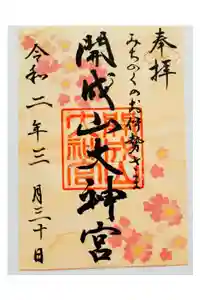 奉拝
みちのくのお伊勢さま
開成山大神宮
開成山
大神宮
令和二年三月二十日